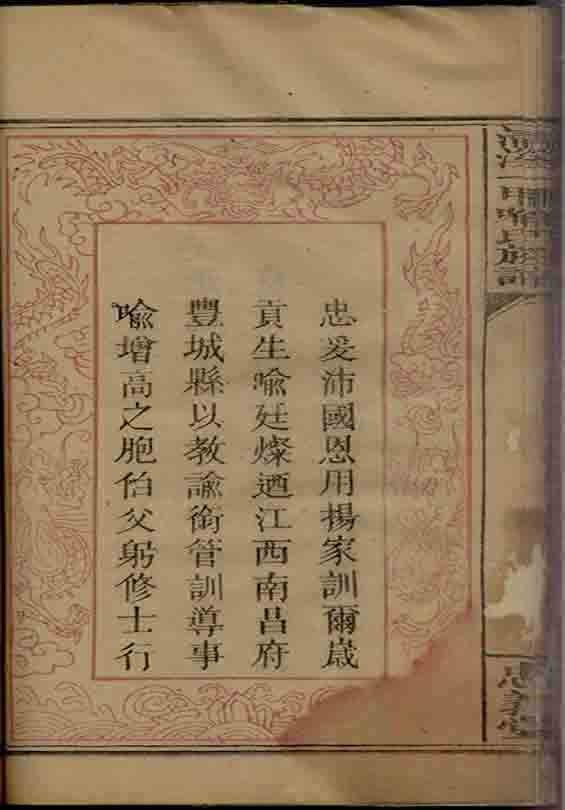 忠爰沛國恩用揚家訓爾歲
貢生喻廷燦迺江西南昌府
豐城縣以教諭銜管訓導事
喻增高之胞伯父躬修士行